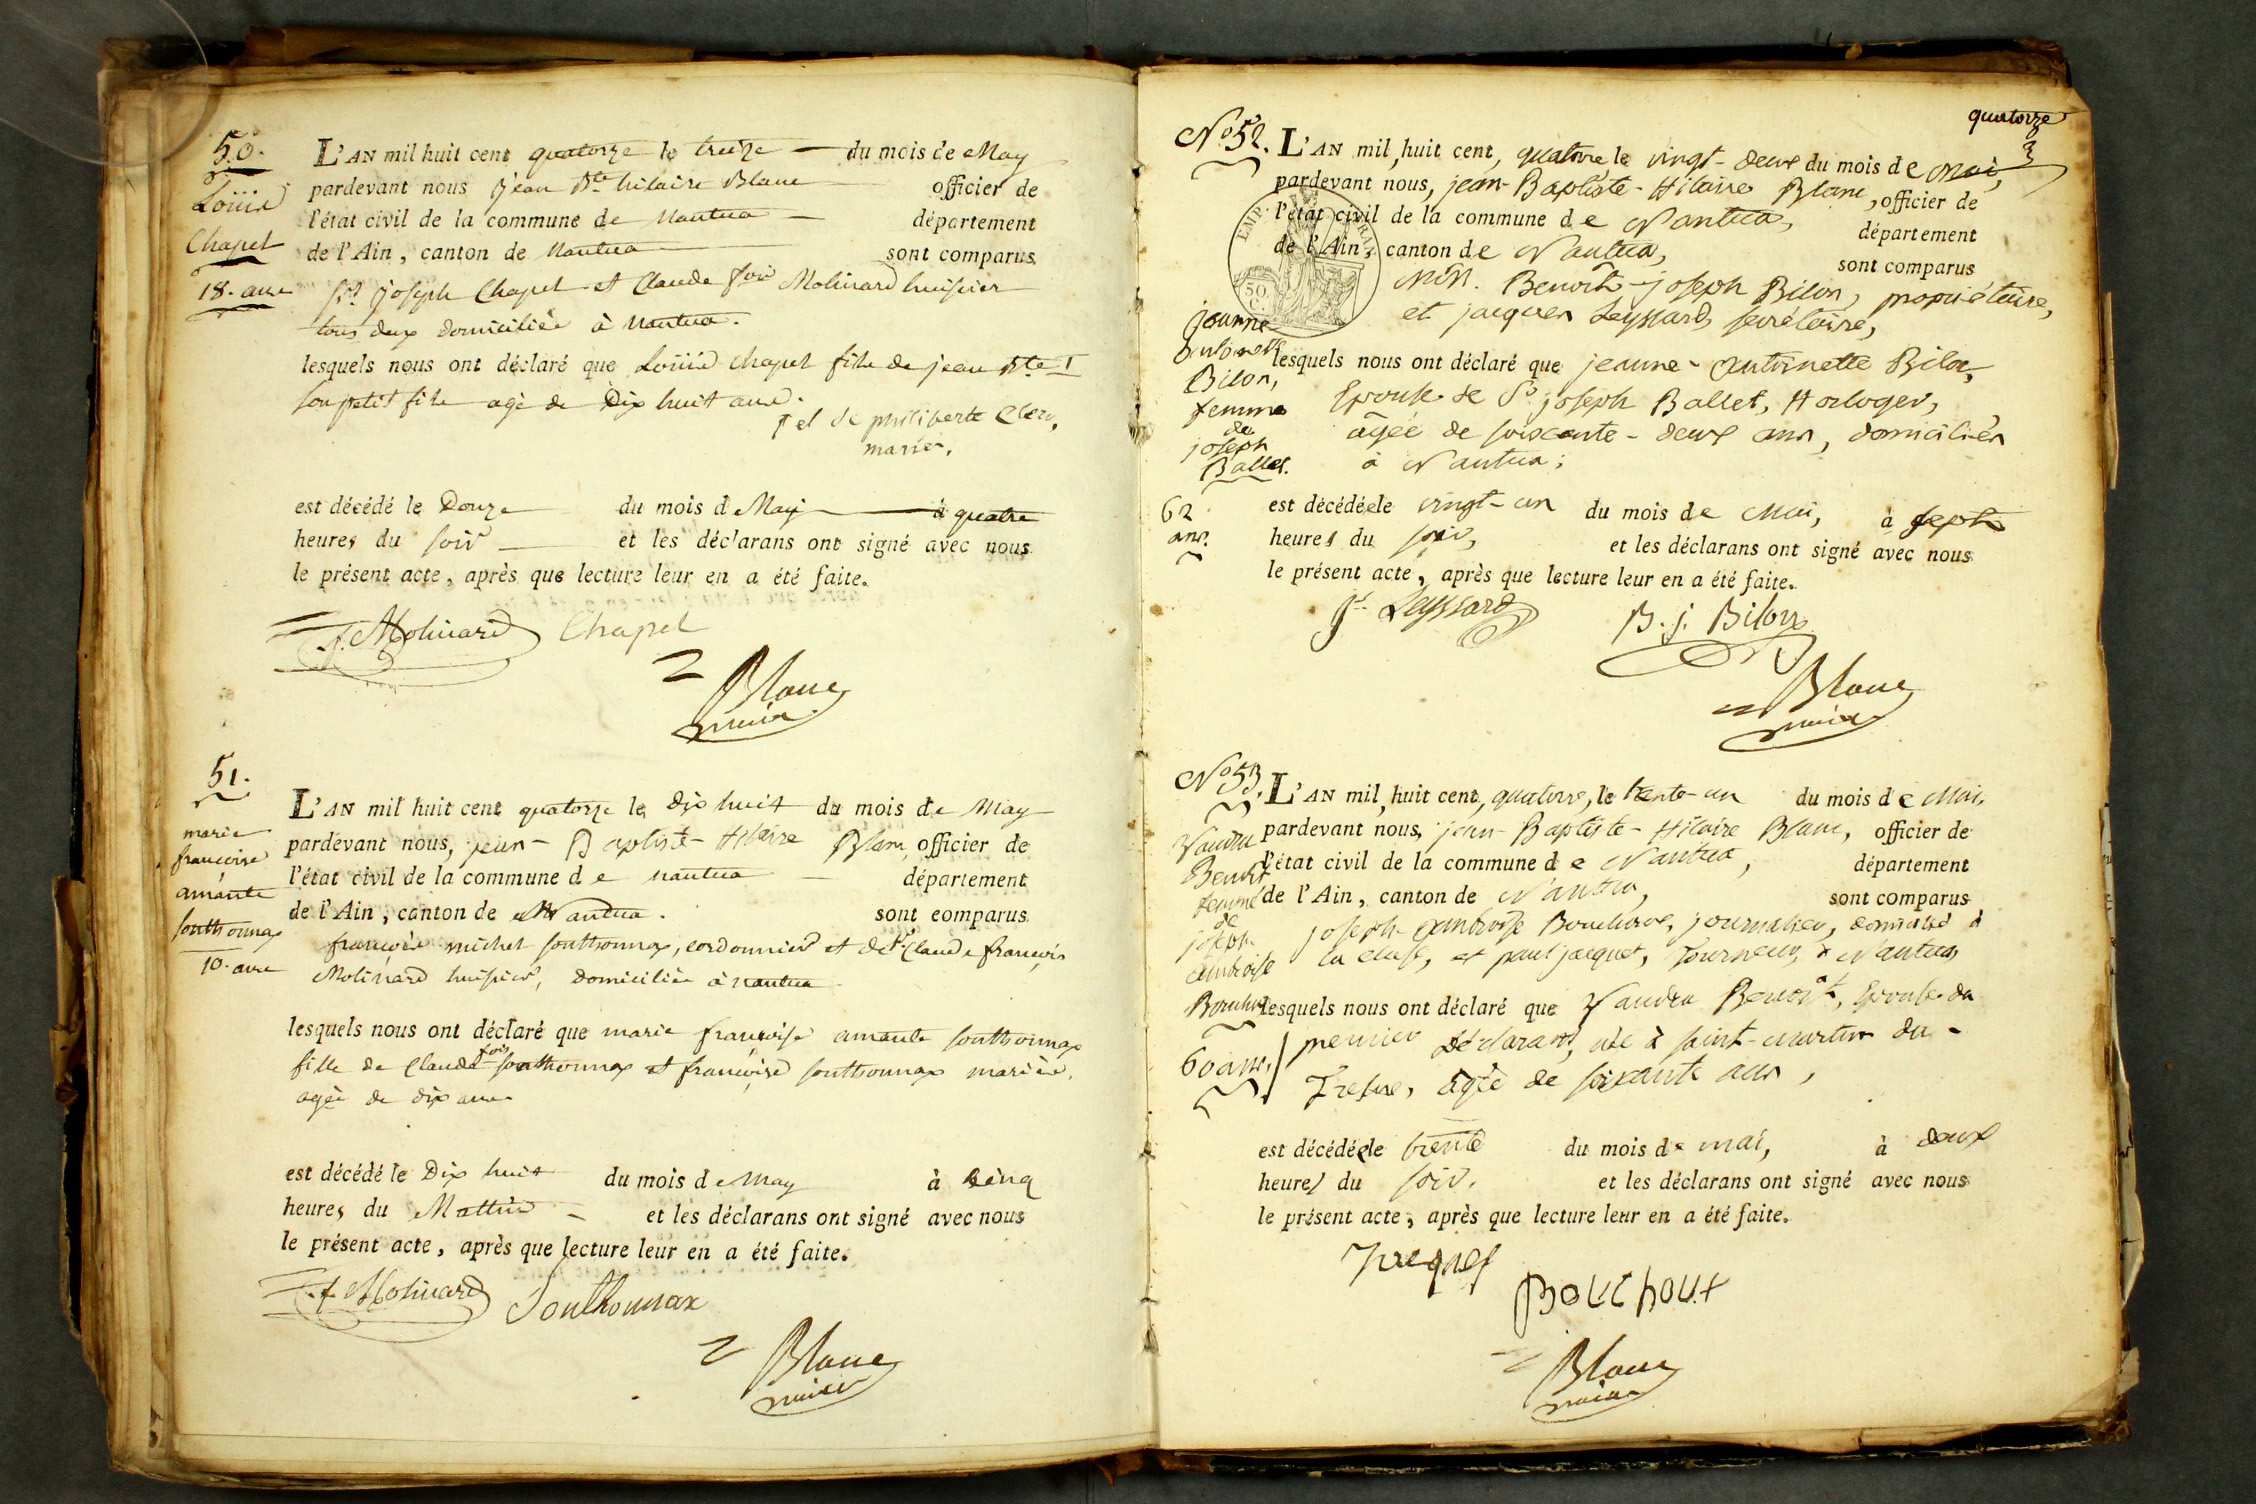 50.
Louis
Chapel
18. ans
L'AN mil huit cent quatorze le treize du mois de May
pardevant nous Jean Bte hilaire Blanc officier de
l'état civil de la commune de Nantua département
de l'Ain, canton de Nantua sont comparus
Sr. Joseph Chapel et Claude fois Molinard huissier
tous deux domiciliés à Nantua.
lesquels nous ont déclaré que Louis Chapel fils de jean Bte
son petit fils agé de Dix huit ans.
et de philiberte Clerc,
mariés,
est décédé le Douze du mois de May à quatre
heures du soir et les déclarans ont signé avec nous
le présent acte, après que lecture leur en a été faite.
f. Molinard Chapel
Blanc
maire
51.
marie
françoise
amante
Souttonnax
10. ans
L'AN mil huit cent quatorze le dix huit du mois de May
pardevant nous, jean-Baptiste-Hilaire Blanc, officier de
l'état civil de la commune de Nantua département
de l'Ain, canton de Nantua. sont comparus
françois michel Souttonnax, cordonnier et de Sr Claude françois
Molinard huissier, domiciliés à nantua
lesquels nous ont déclaré que marie françoise amante Southonnax
fille de Claude fois Southonnax et françoise Southonnax mariés,
agée de dix ans
est décédé le Dix huit du mois de May à cinq
heures du Mattin et les déclarans ont signé avec nous
le présent acte, après que lecture leur en a été faite.
f. Molinard Southonnax
Blanc
maire
quatorze
No. 52.
jeanne
antoinette
Bilon,
femme
de
joseph
Ballet.
62
ans.
L'AN mil huit cent, quatorze le vingt-deux du mois de Mai,
pardevant nous, jean-Baptiste-Hilaire Blanc, officier de
l'état civil de la commune de Nantua, département
de l'Ain, canton de Nantua, sont comparus
MM. Benoît-joseph Bilon, propriétaire,
et jacques Leyssard, secrétaire,
lesquels nous ont déclaré que jeanne-antoinette Bilon,
Epouse de Sr. joseph Ballet, Horloger,
âgée de soixante-deux ans, domiciliés
à Nantua;
est décédée le vingt-un du mois de Mai, à sept
heures du soir, et les déclarans ont signé avec nous
le présent acte, après que lecture leur en a été faite.
Jes. Leyssard B. j. Bilon
Blanc
maire
EMP. FRAN.
50.
C.
No. 53.
Benoît
femme
de
joseph
ambroise
60 ans.
L'AN mil huit cent, quatorze, le trente-un du mois de Mai,
pardevant nous, jean-Baptiste-Hilaire Blanc, officier de
l'état civil de la commune de Nantua, département
de l'Ain, canton de Nantua, sont comparus
joseph-ambroise Bouchoux, journalier, domicilié à
la cluse, et paul jacquet, Tourneur, à Nantua,
lesquels nous ont déclaré que Benoît, Epouse du
premier Déclarant, née à saint-martin du-
Fresne, âgée de soixante ans,
est décédée le trente du mois de mai, à deux
heures du soir, et les déclarans ont signé avec nous
le présent acte, après que lecture leur en a été faite.
Bouchoux
Blanc
maire